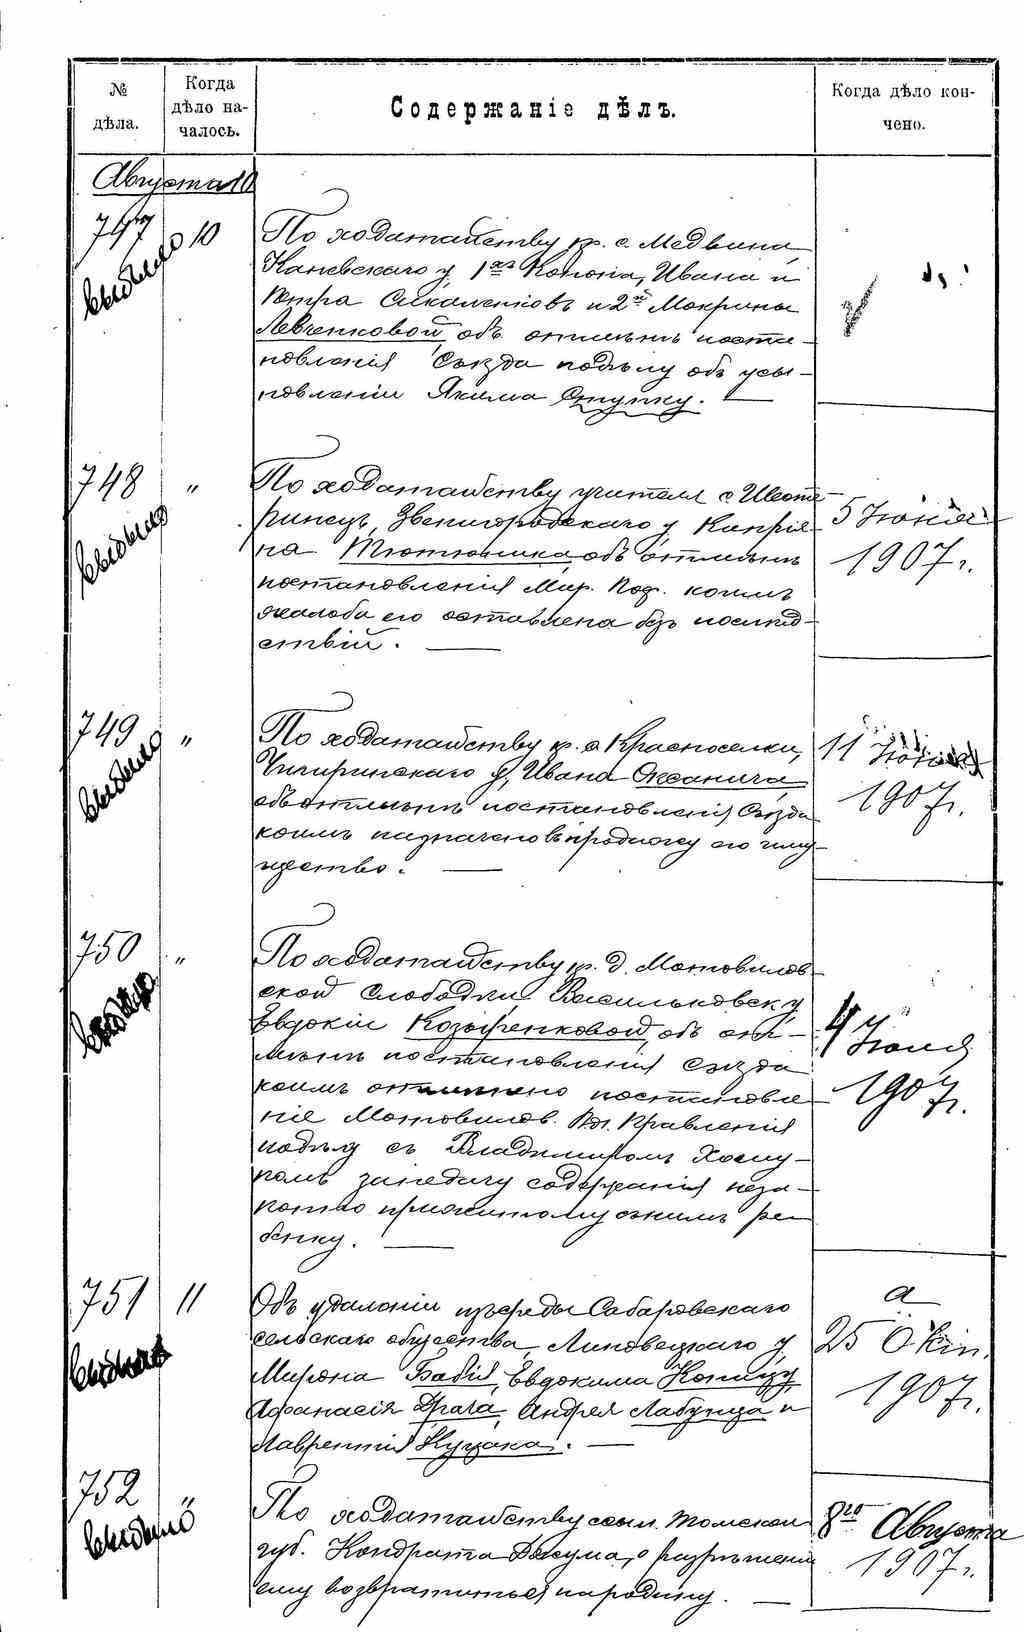 №
дѣла.
Когда
дѣло на-
чалось.
Содержаніе дѣлъ.
Когда дѣло кон-
чено.
Августа 10
747
выбыло
10
По ходатайству кр. с. Медвина
Каневскаго у, 1хъ Конона, Ивана и
Петра и 2й Мокрины
Левченковой объ отмѣнѣ поста-
новленія Съѣзда по дѣлу объ усы-
новленіи Якима Ступку.
748
выбыло
"
По ходатайству учителя с
Звенигородскаго у Кипрія-
на Тютюника объ отмѣнѣ
постановленія Мир. Пос. коимъ
жалоба его оставлена безъ послѣд-
ствій.
5 Іюня
1907 г.
749
выбыло
"
По ходатайству кр. с. Красноселки,
Чигиринскаго у, Ивана Оксанича
объ отмѣнѣ постановленія Съѣзда
коимъ назначено въ продажу его иму-
щество.
11 Іюня
1907 г.
750
выбыло
"
По ходатайству кр. д. Мотовилов-
ской Слободки Васильковск у
Евдокіи Козыренковой, объ от-
мѣнѣ постановленія съѣзда
коимъ отмѣнено постановле-
ніе Мотовилов. Вол. Правленія
по дѣлу съ Владимиромъ
за недачу содержанія неза-
конно прижитому съ нимъ ре-
бенку.
4 Іюля
1907 г.
751
выбыло
11
Объ удаленіи изъ среды Сабаровскаго
сельскаго общества, Липовецкаго у,
Мирона Бабія, Евдокима Копицу,
Афанасія Драча, Андрея Лабунца и
Лаврентія Куцака.
а
25 Окт.
1907 г.
752
выбыло
"
По ходатайству ссыл. Томской
губ. Кондрата о разрѣшеніи
ему возвратиться на родину.
8го Августа
1907 г.